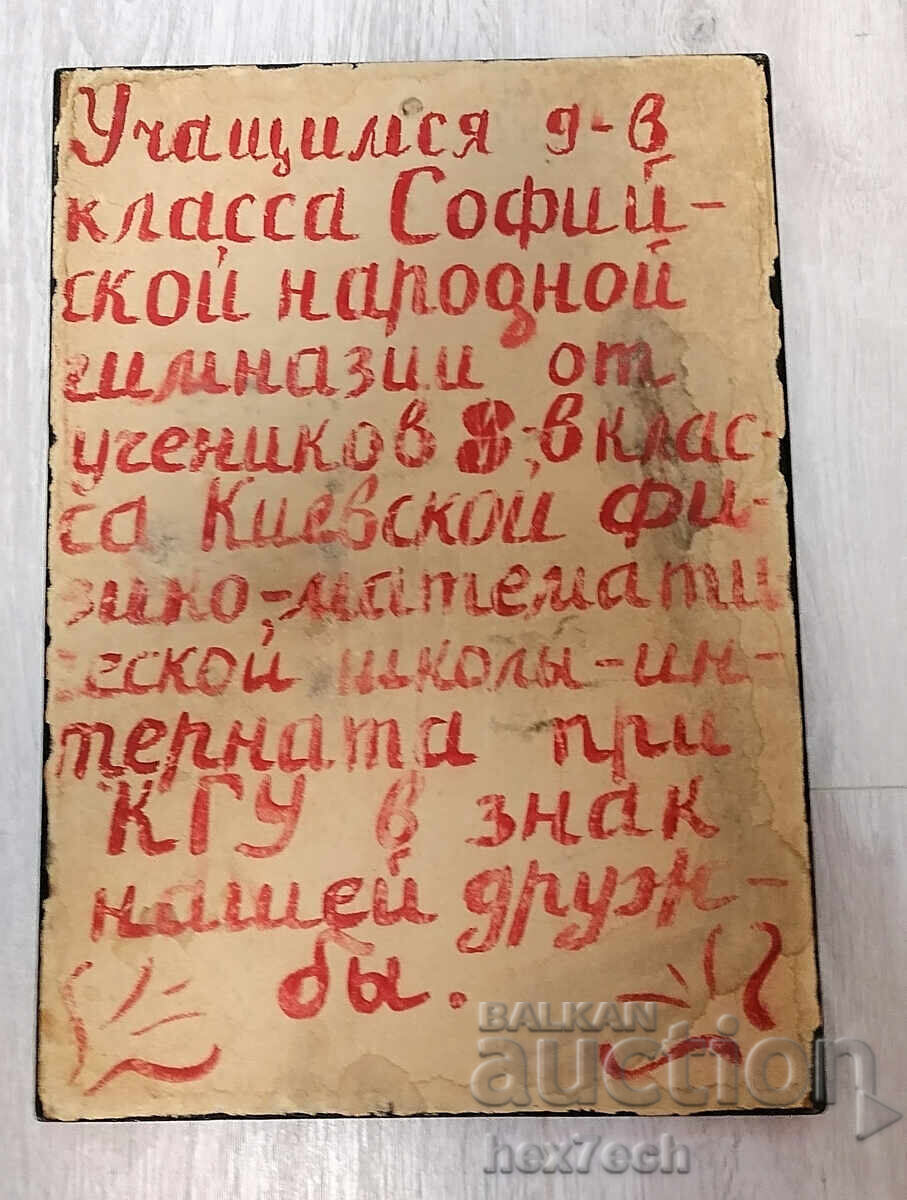 Учащимся 9-в
класса Софий-
ской народной
гимназии от
учеников 9-в клас-
са Киевской фи-
зико-математи
ческой школы-ин-
терната при
КГУ в знак
нашей друж-
бы.
BALKAN
auction
hex7ech